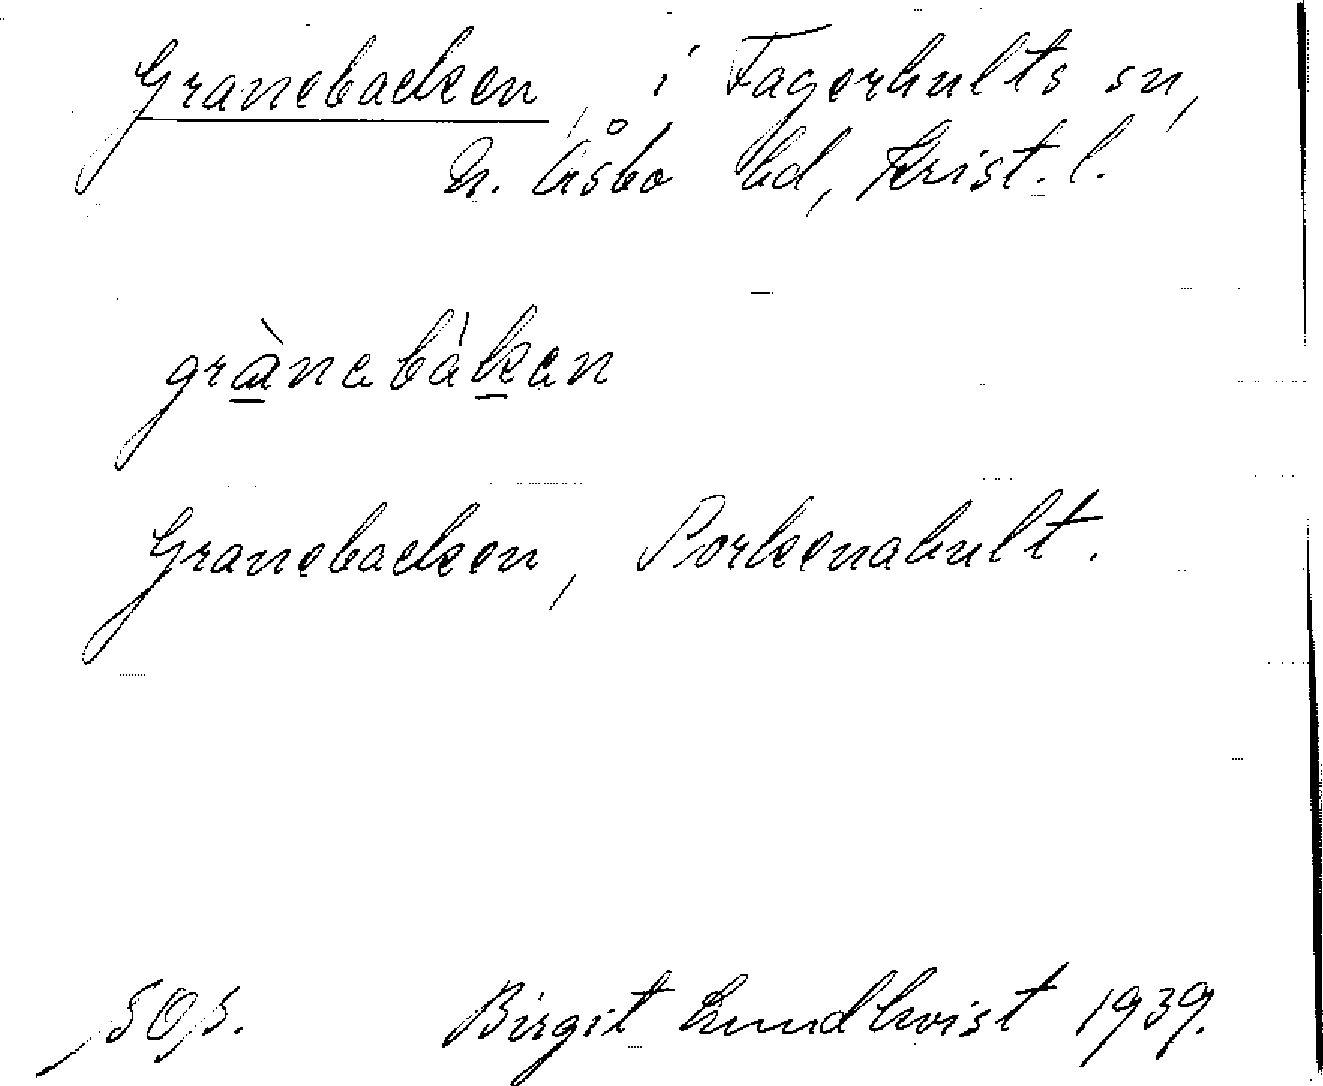 Granebacken, i Fagerhults sn,
N. Åsbo hd, Krist. l.
grànabàkan
Granebacken, Porkenahult.
Birgit Lundkvist 1939.